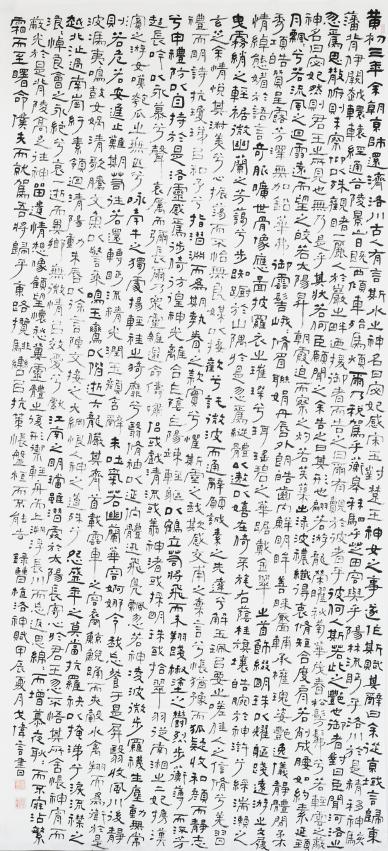 黃初三年余朝京師還濟洛川古之有言斯水之神名曰宓妃感宋玉對楚王神女之事遂作斯賦其辭曰余從京域言歸東
藩背伊闕越轘轅經通谷陵景山日既西傾車殆馬煩爾乃稅駕乎蘅皋秣駟乎芝田容與乎陽林流眄乎洛川於是精移神駭
忽焉思散俯則未察仰以殊觀睹一麗人於巖之畔迺援御者而告之曰爾有覿於彼者乎彼何人斯若此之豔也御者對曰臣聞河洛之
神名曰宓妃然則君王之所見也無乃是乎其狀若何臣願聞之余告之曰其形也翩若驚鴻婉若游龍榮曜秋菊華茂春松髣髴兮若輕雲之蔽
月飄颻兮若流風之迴雪遠而望之皎若太陽昇朝霞迫而察之灼若芙蕖出淥波穠纖得衷脩短合度肩若削成腰如約素延頸
秀項皓質呈露芳澤無加鉛華弗御雲髻峨峨脩眉聯娟丹唇外朗皓齒內鮮明眸善睞靨輔承權瓌姿豔逸儀靜體閑柔
情綽態媚於語言奇服曠世骨像應圖披羅衣之璀璨兮珥瑤碧之華琚戴金翠之首飾綴明珠以耀軀踐遠遊之文履
曳霧綃之輕裾微幽蘭之芳藹兮步踟躕於山隅於是忽焉縱體以遨以嬉左倚采旄右蔭桂旗攘皓腕於神滸兮采湍瀨之
玄芝余情悅其淑美兮心振蕩而不怡無良媒以接歡兮託微波而通辭願誠素之先達兮解玉珮以要之嗟佳人之信脩兮羌習
禮而明詩抗瓊珶以和予兮指潛淵而為期執眷眷之款實兮懼斯靈之我欺感交甫之棄言兮悵猶豫而狐疑收和顏而靜志
兮申禮防以自持於是洛靈感焉徙倚彷徨神光離合乍陰乍陽竦輕軀以鶴立若將飛而未翔踐椒塗之郁烈步蘅薄而流芳
超長吟以永慕兮聲哀厲而彌長爾迺眾靈雜遝命儔嘯侶或戲清流或翔神渚或採明珠或拾翠羽從南湘之二妃攜漢
濱之游女嘆匏瓜之無匹兮詠牽牛之獨處揚輕袿之猗靡兮翳脩袖以延佇體迅飛鳧飄忽若神凌波微步羅襪生塵動無常
則若危若安進止難期若往若還轉眄流精光潤玉顏含辭未吐氣若幽蘭華容婀娜令我忘餐於是屏翳收風川后靜
波馮夷鳴鼓女媧清歌騰文魚以警乘鳴玉鸞以偕逝六龍儼其齊首載雲車之容裔鯨鯢踊而夾轂水禽翔而為衛於是
越北沚過南岡紆素領迴清陽動朱唇以徐言陳交接之大綱恨人神之道殊兮怨盛年之莫當抗羅袂以掩涕兮淚流襟之
浪浪悼良會之永絕兮哀一逝而異鄉無微情以效愛兮獻江南之明璫雖潛處於太陰長寄心於君王忽不悟其所舍悵神宵而
蔽光於是背下陵高足往神留遺情想像顧望懷愁冀靈體之復形御輕舟而上溯浮長川而忘返思綿綿而增慕夜耿耿而不寐霑繁
霜而至曙命僕夫而就駕吾將歸乎東路攬騑轡以抗策悵盤桓而不能去 錄曹植洛神賦甲辰夏月戈偉言書